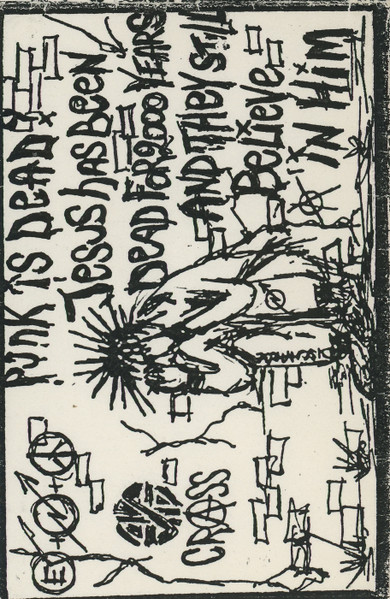 PUNK iS DeAD?
Jesus hAS BeeN
DEAD FOR 2000 YEARS
AND THEY STiLL
Believe
iN HiM
E N
CRASS